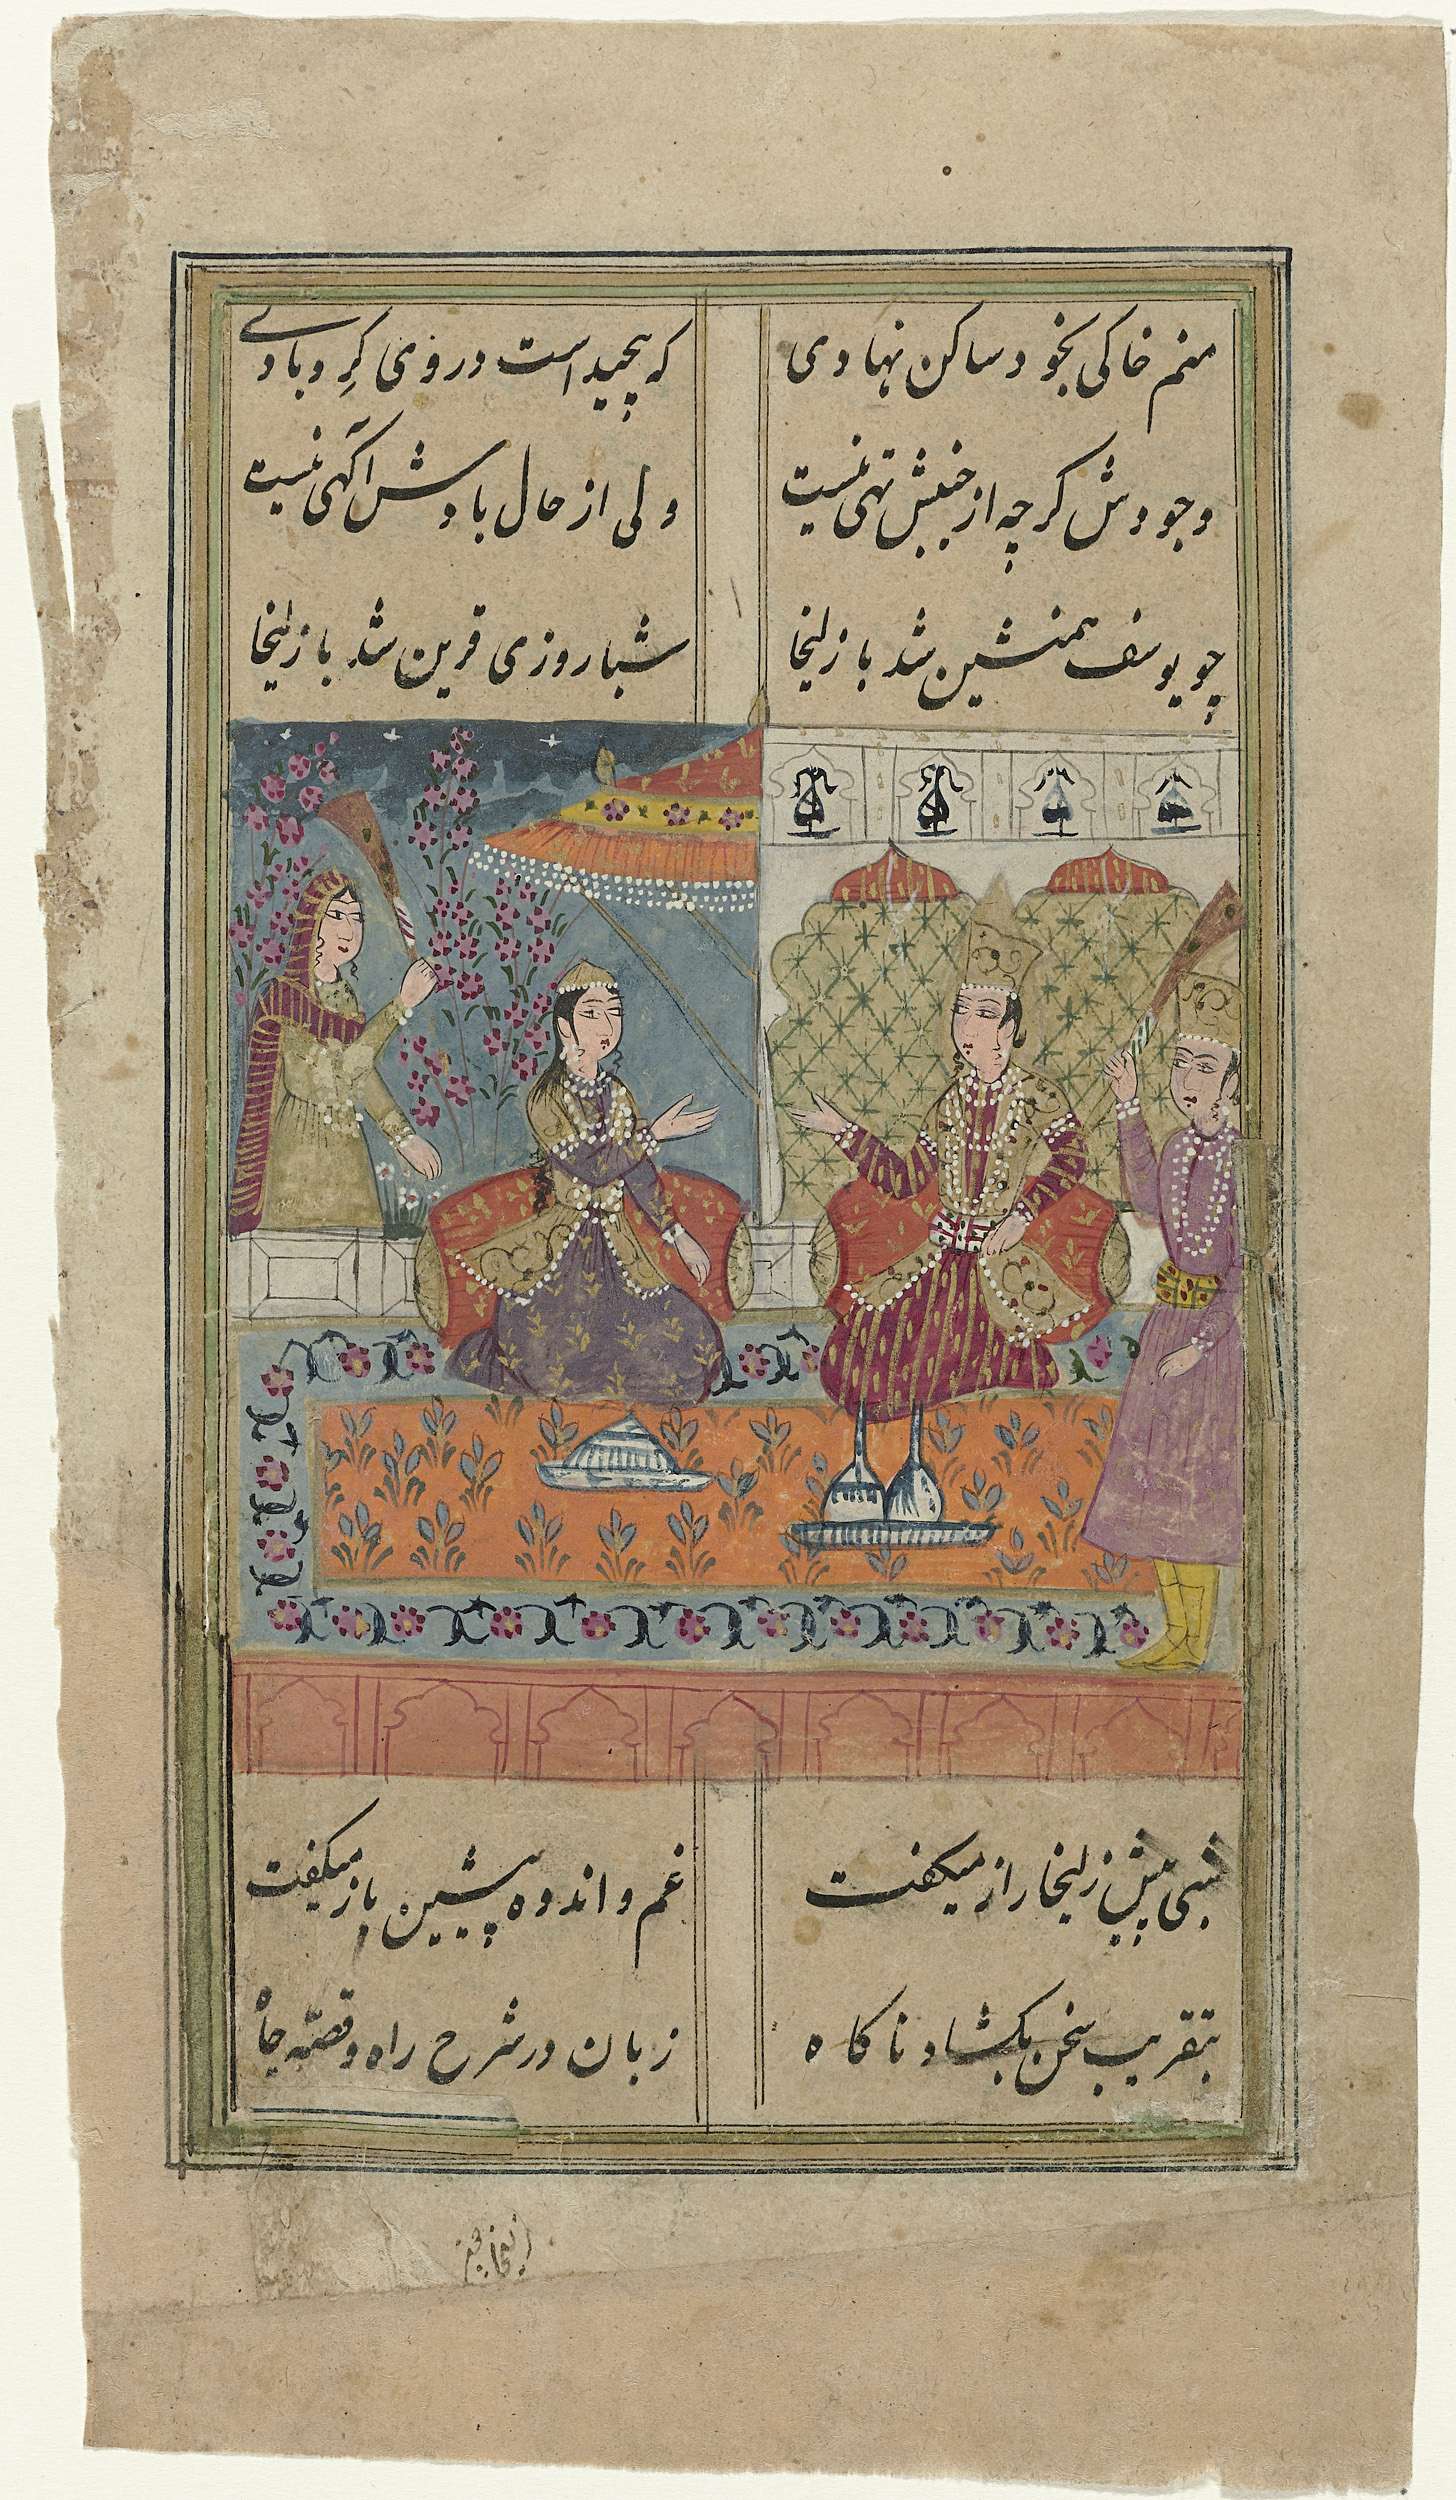 منم خاکی بخود ساکن نهادی
که پیچید است در وی کرد بادی
وجودش کرچه از جنبش تهی نیست
ولی از حال بادش آکهی نیست
چو یوسف همنشین شد با زلیخا
شبا روزی قرین شد با زلیخا
شبی پیش زلیخا راز میکفت
غم و اندوه پیشین باز میکفت
بتقریب سخن بکشاد ناکاه
زبان در شرح راه و قصّه چاه